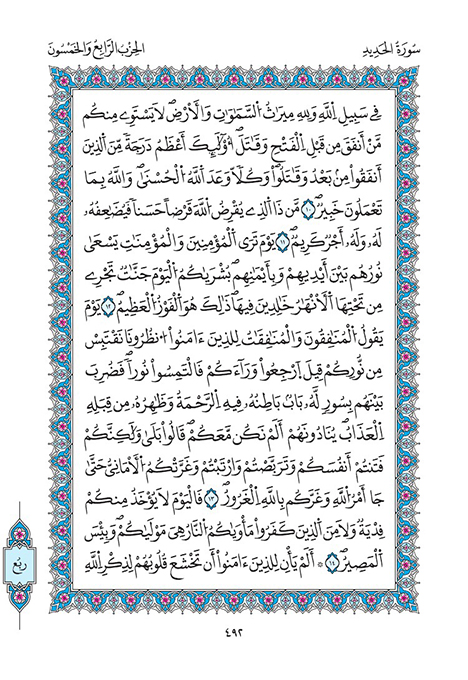 سُورَةُ الحَدِيدِ
الحِزْبُ الرَّابِعُ وَالخَمْسُونَ
فِے سَبِيلِ اِ۬للَّهِ وَلِلهِ مِيرَٰثُ اُ۬لسَّمَٰوَٰتِ وَالْأَرْضِۖ لَا يَسْتَوِے مِنكُم
مَّنْ أَنفَقَ مِن قَبْلِ اِ۬لْفَتْحِ وَقَٰتَلَۖ أُوْلَٰٓئِكَ أَعْظَمُ دَرَجَةٗ مِّنَ اَ۬لذِينَ
أَنفَقُواْ مِنۢ بَعْدُ وَقَٰتَلُواْۖ وَكُلّاٗ وَعَدَ اَ۬للَّهُ اُ۬لْحُسْنَىٰۖ وَاللَّهُ بِمَا
تَعْمَلُونَ خَبِيرٞۖ ١٠ مَّن ذَا اَ۬لذِے يُقْرِضُ اُ۬للَّهَ قَرْضاً حَسَناٗ فَيُضَٰعِفُهُۥ
لَهُۥ وَلَهُۥٓ أَجْرٞ كَرِيمٞۖ ١١ يَوْمَ تَرَى اَ۬لْمُؤْمِنِينَ وَالْمُؤْمِنَٰتِ يَسْعَىٰ
نُورُهُم بَيْنَ أَيْدِيهِمْ وَبِأَيْمَٰنِهِمۖ بُشْر۪يٰكُمُ اُ۬لْيَوْمَ جَنَّٰتٞ تَجْرِے
مِن تَحْتِهَا اَ۬لْأَنْهَٰرُ خَٰلِدِينَ فِيهَاۖ ذَٰلِكَ هُوَ اَ۬لْفَوْزُ اُ۬لْعَظِيمُۖ ١٢ يَوْمَ
يَقُولُ اُ۬لْمُنَٰفِقُونَ وَالْمُنَٰفِقَٰتُ لِلذِينَ ءَامَنُواْ اُ۟نظُرُونَا نَقْتَبِسْ
مِن نُّورِكُمْ قِيلَ اَ۪رْجِعُواْ وَرَآءَكُمْ فَالْتَمِسُواْ نُوراٗۖ فَضُرِبَ
بَيْنَهُم بِسُورٖ لَّهُۥ بَابُۢ بَاطِنُهُۥ فِيهِ اِ۬لرَّحْمَةُ وَظَٰهِرُهُۥ مِن قِبَلِهِ
اِ۬لْعَذَابُۖ يُنَادُونَهُمُۥٓ أَلَمْ نَكُن مَّعَكُمْۖ قَالُواْ بَلَىٰ وَلَٰكِنَّكُمْ
فَتَنتُمُۥٓ أَنفُسَكُمْ وَتَرَبَّصْتُمْ وَارْتَبْتُمْ وَغَرَّتْكُمُ اُ۬لْأَمَانِيُّ حَتَّىٰ
جَا أَمْرُ اُ۬للَّهِ وَغَرَّكُم بِاللَّهِ اِ۬لْغَرُورُۖ ١٣ فَالْيَوْمَ لَا يُؤْخَذُ مِنكُمْ
فِدْيَةٞ وَلَا مِنَ اَ۬لذِينَ كَفَرُواْۖ مَأْو۪يٰكُمُ اُ۬لنَّارُ هِيَ مَوْل۪يٰكُمْۖ وَبِيسَ
اَ۬لْمَصِيرُۖ ١٤ ۞ أَلَمْ يَأْنِ لِلذِينَ ءَامَنُوٓاْ أَن تَخْشَعَ قُلُوبُهُمْ لِذِكْرِ اِ۬للَّهِ
رُبُع
٤٩٢